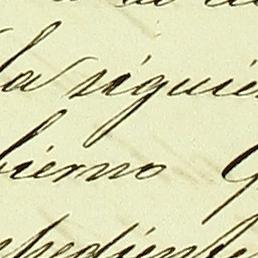 la siguien
bierno G
pediente